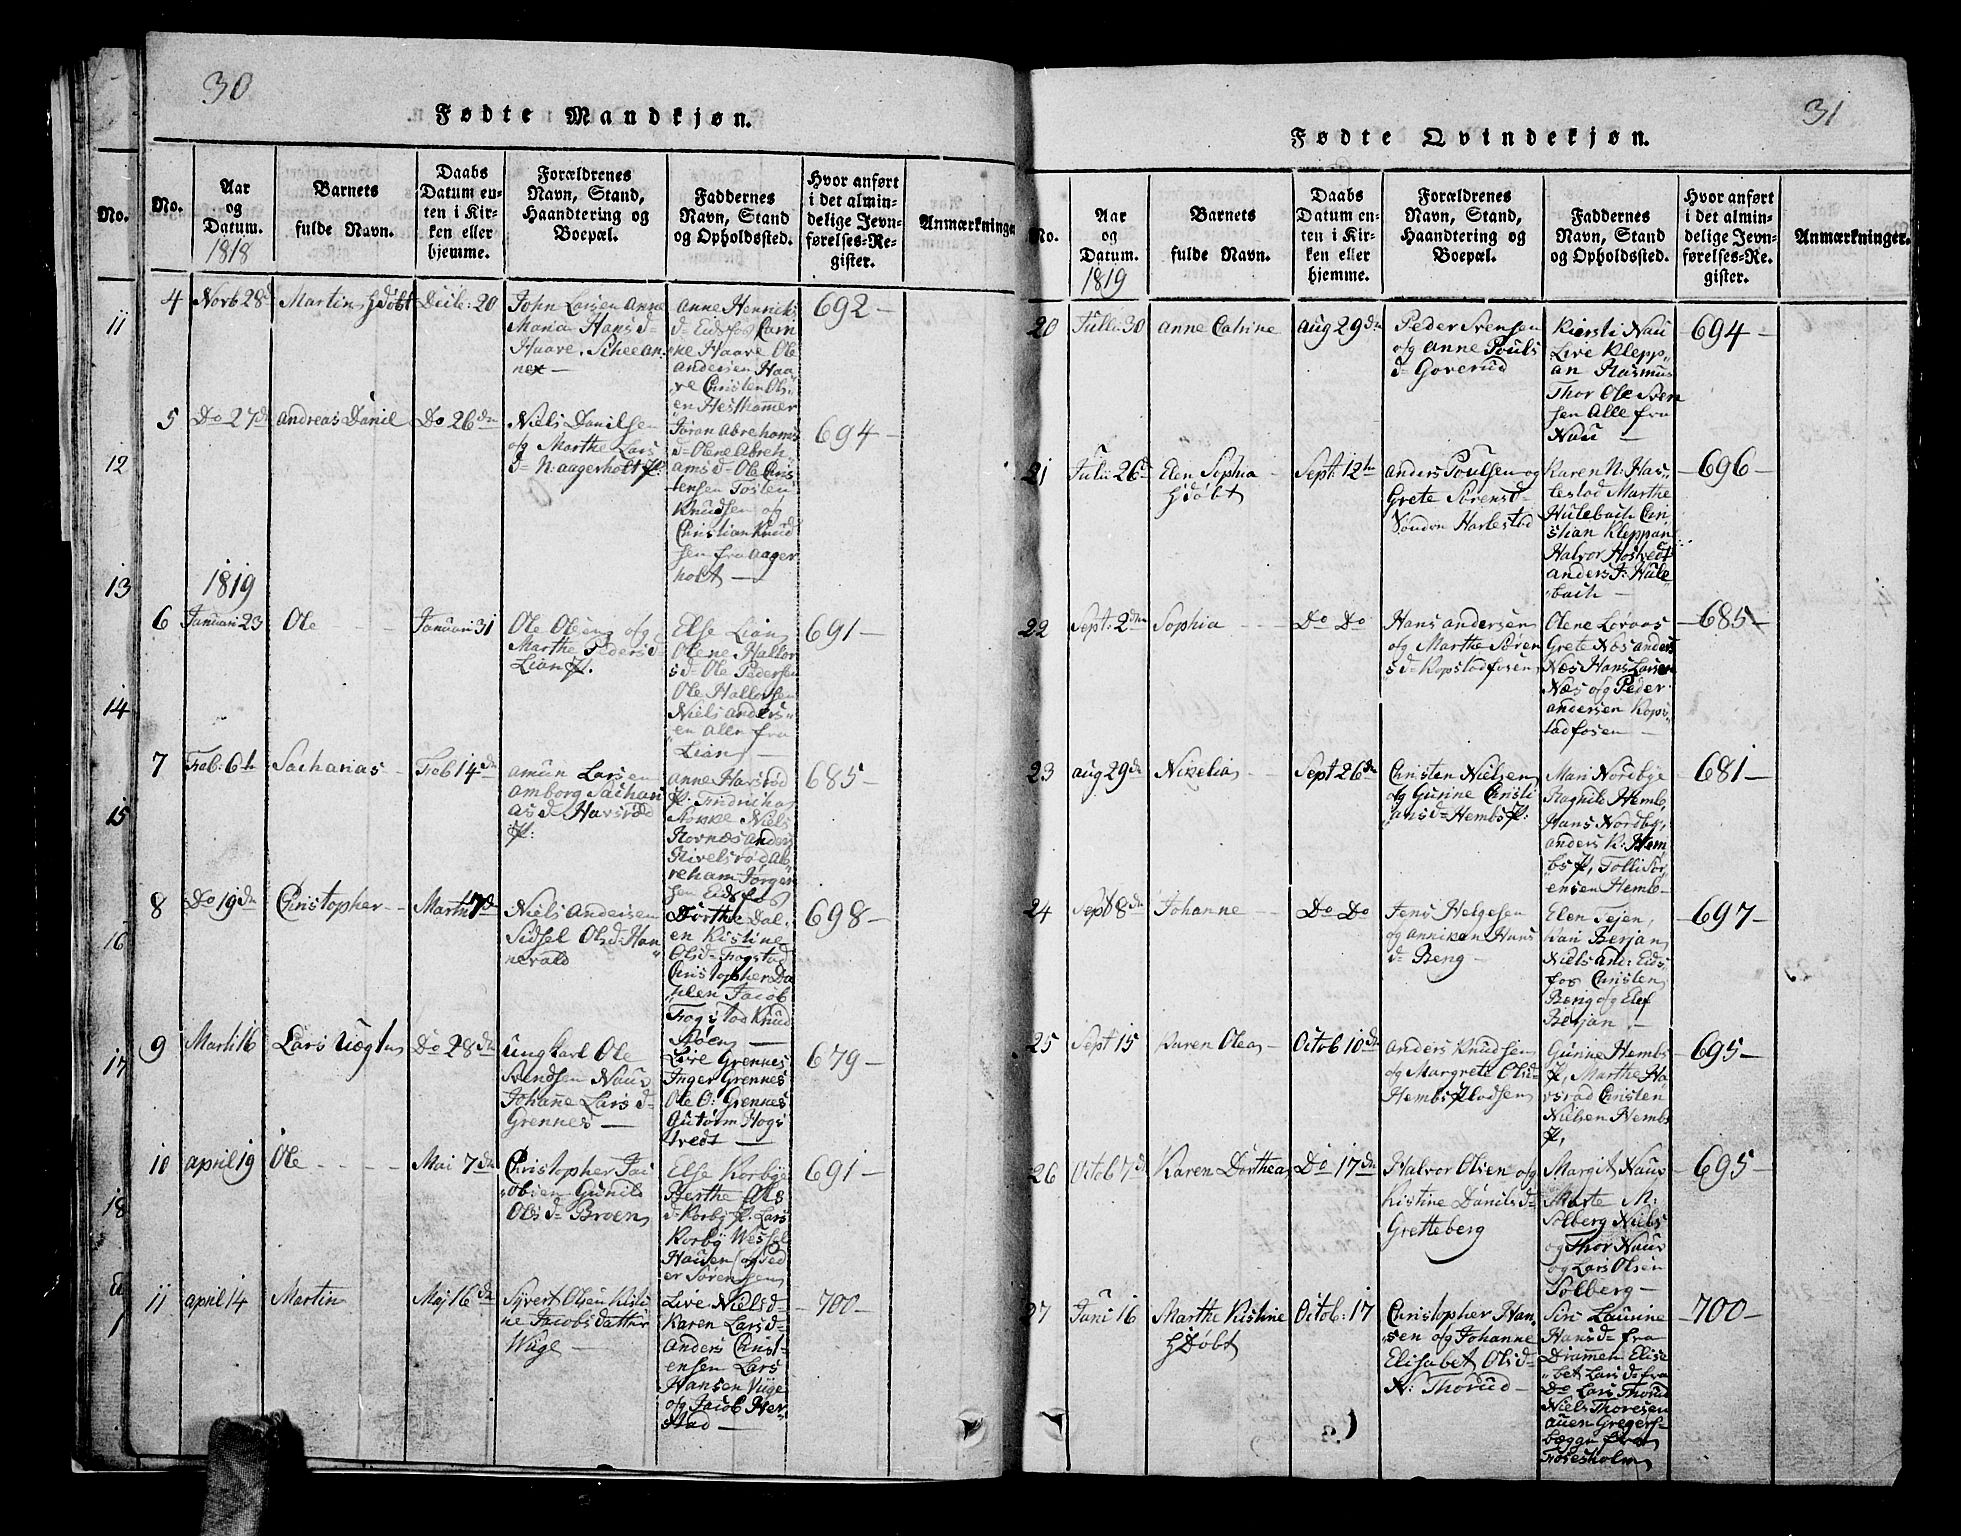 30
Fødte Mandkjøn.
No.
Aar
og
Datum.
1818
Barnets
fulde Navn.
Daabs
Datum en-
ten i Kir-
ken eller
hjemme.
Forældrenes
Navn, Stand,
Haandtering og
Boepæl.
Faddernes
Navn, Stand
og Opholdssted.
Hvor anført
i det almin-
delige Jevn-
førelses-Re-
gister.
Anmærkninger
4
Novb 28d
Martin hdøbt
Decb: 20
John Larsen Anne
Maria Hans d=
Haave. Schee an
nex —
Anne Henriks
d= Eidsfos Carn
ne Haave Ole
Andersen Haa
ve Christen Ols
en Hestkamer
692 —
5
Do 27de
Andreas Danil
Do 26de
Niels Danilsen
og Marthe Lars
d= N: aagerholt
Joran Abrehams
d= Olene Abreh
ams d= Ole Chris
tensen Tosten
Knudsen og
Christian Knud
sen fra aager
holt —
694 —
1819
6
Januari 23
Ole
Januari 31
Ole Olsen og
Marthe Peders d=
Lian
Else Lian
Olene Hallor
s d= Ole Pedersen
Ole Hallorsen
Niels Anders
en alle fra
Lian —
691 —
7
Feb: 6th
Sacharias
Feb 14de
Amun Larsen
Amborg Sachari
as d= Havsrød
Anne Havsrød
Fridricha
Niels
Anders
Abreham Jørgen
sen Eidsfos
685 —
8
Do 19de
Christopher
Marti 7d
Niels Andersen
Sidsel Ols d= Han
nevald
Dorthe Dal
en Kistine
Ols d= Fogstad
Christopher Da
hlen Jacob
Fogstad Knud
698 —
9
Marti 16
Lars
Do 28de
Ungkarl Ole
Svendsen Nauv
Johane Lars d=
Grennes —
Live Grennes
Inger Grennes
Ole O: Grennes
Gutorm Hogs
tvedt —
679 —
10
April 19
Ole
Mai 7de
Christopher Jac
obsen Gunild
Ols d= Broen
Else Korbye
Berthe Ols
d= Korby Lars
Korby Wessel
Hansen og Ped
er Sørensen
691 —
11
April 14
Martin
Maj 16de
Syvert Olsen Kisti
ne Jacobsdatter
Wiige —
Live Niels d=
Karen Lars d=
Anders Christ
ensen Lars
Hansen Viige
og Jacob Her
stad —
700 —
No.
11
12
13
14
15
16
17
18
31
Fødte Qvindekjøn.
No.
Aar
og
Datum.
1819
Barnets
fulde Navn.
Daabs
Datum en-
ten i Kir-
ken eller
hjemme.
Forældrenes
Navn, Stand,
Haandtering og
Boepæl.
Faddernes
Navn, Stand
og Opholdssted.
Hvor anført
i det almin-
delige Jevn-
førelses-Re-
gister.
Anmærkninger.
20
Julii 30
Anne Catrine
Aug 29de
Peder Svensen
og Anne Pouls
d= Goverud
Kiersti Nau
Live Klepp
an Rasmus
Thor Ole Sven
sen Alle fra
Nau —
694 —
21
Julii 26d
Elen Sophia
hdøbt
Sept: 12te
Anders Poulsen og
Grete Sørens d=
Søndon Harlestad
Karen N: Har
lestad Marthe
Hulebach Chri
stian Kleppan
Halvor Hostvedt
Anders J: Hule
bach —
696 —
22
Sept: 2den
Sophia
Do Do
Hans Andersen
og Marthe Søren
s d= Kopstadfosen
Olene Løvaas
Grete Næs Anders
Næs Hans Larsen
Næs og Peder
Andersen Kops
tadfosen —
685 —
23
Aug 29de
Nizelia
Sept 26de
Christen Nielsen
og Gurine Christi
ans d= Hembs
Mari Nordbye
Ragnild Hemb,
Hans Nordby,
Anders K: Hem
bs, Tolli Sør
ensen Hemb —
681 —
24
Sept 8de
Johanne
Do Do
Jens Helgesen
og Anniken Hans
d= Berg —
Elen Tejen,
Kari Berjan
Niels And: Eids
fos Christen
Berg og Elef
Berjan. —
697 —
25
Sept 15
Karen Olea
Octob 10de
Anders Knudsen
og Margrete Ols d=
Hembs Pladsen
Gurine Hembs
Marthe Ha
vsrød Christen
Nielsen Hembs
695 —
26
Octob 7d
Karen Dorthea
Do 17de
Halvor Olsen og
Kistine Danils d=
Gretteberg
Margit Nauv
Marte M:
Solberg Niels
og Thor Nauv
og Lars Olsen
Solberg —
695 —
27
Juni 16
Marthe Kistine
hdøbt
Octob: 17
Christopher Han
sen og Johanne
Elisabet Ols d=
N: Thorud —
Siri Laurine
Hans d= fra
Dramen Elisa
bet Lars d= fra
Do Lars Thorud
Niels Thoresen
Auen Gregers
begge fra
Fosesholm
700 —